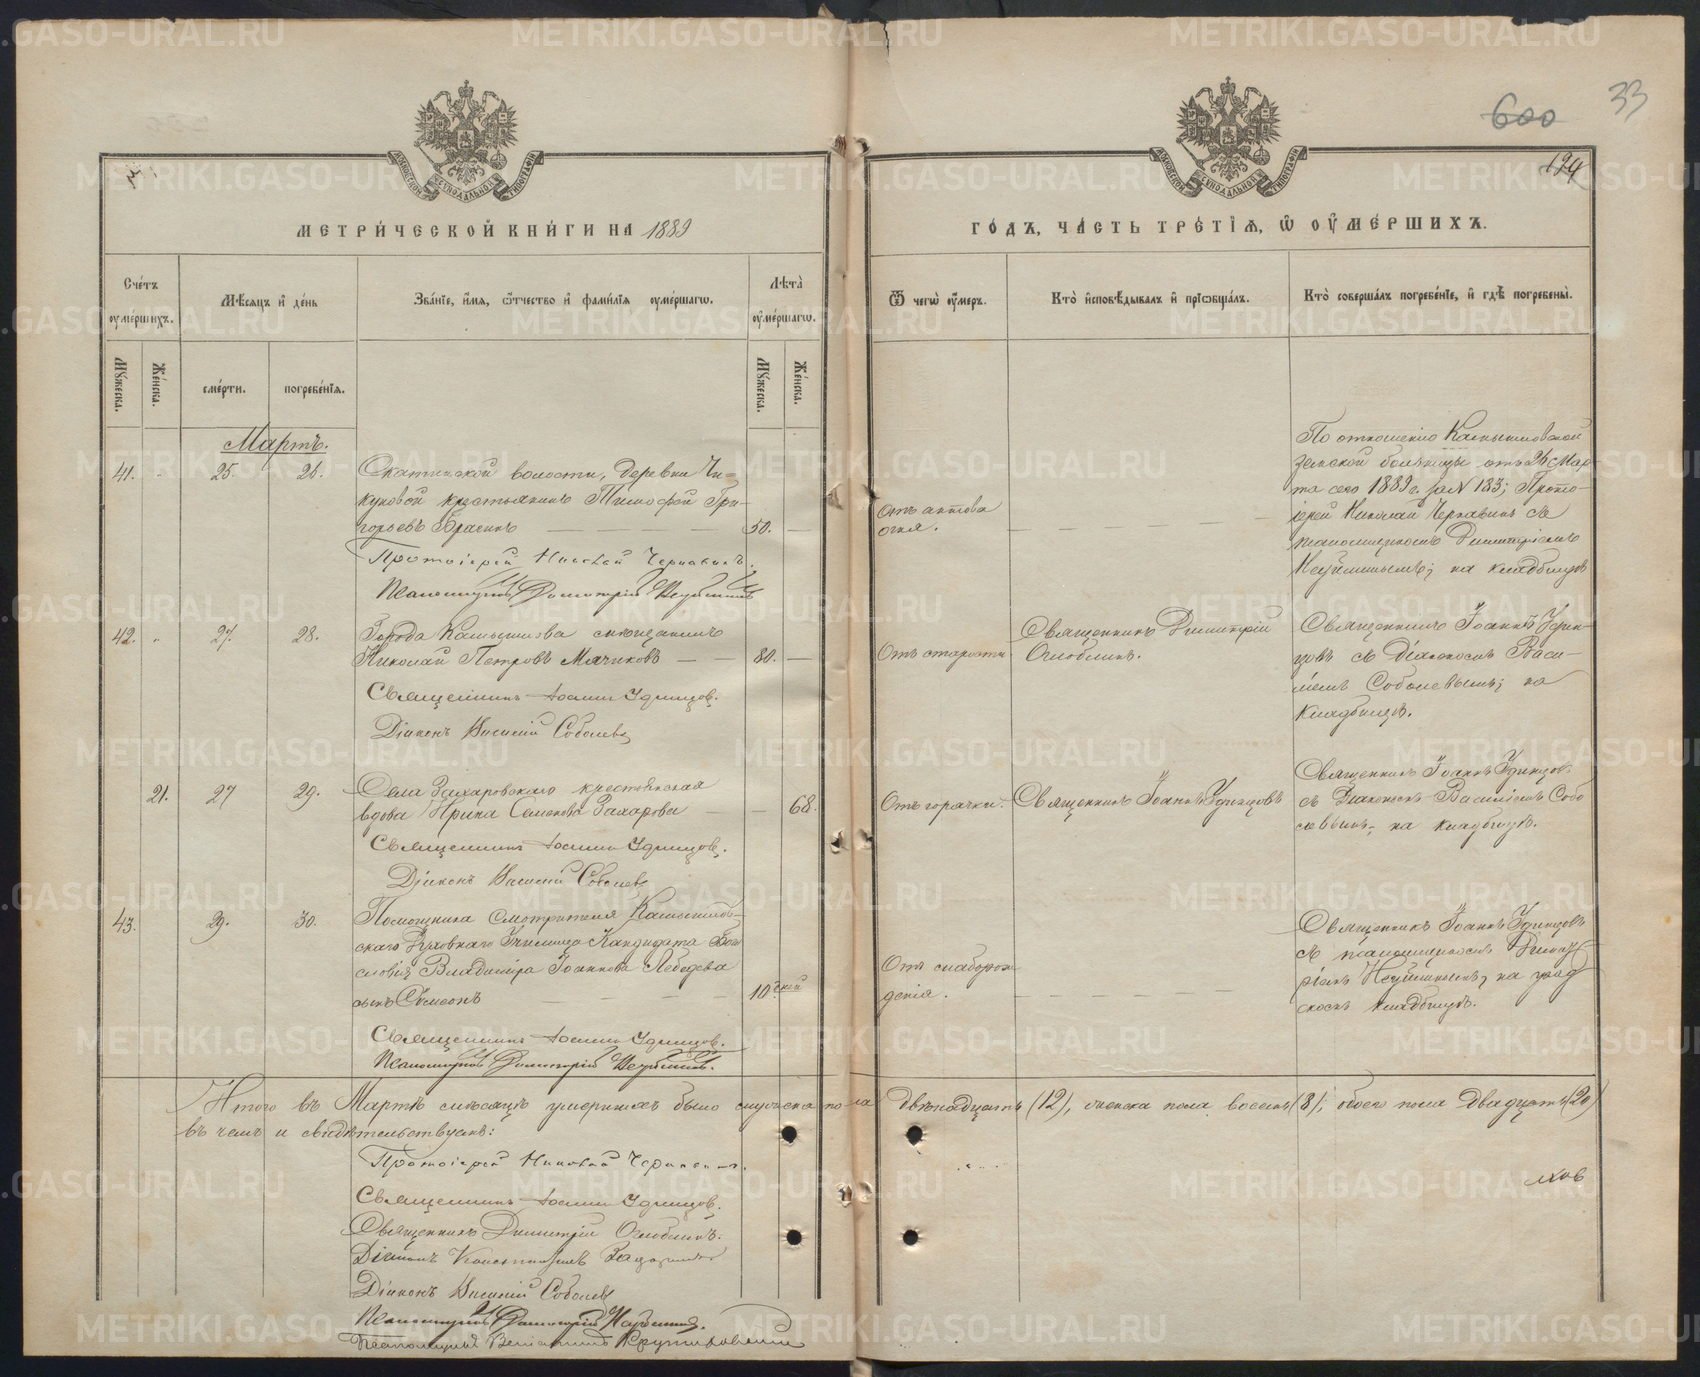 600 33
124
МЕТРИ́ЧЕСКОЙ КНИ́ГИ НА 1889
ГО́ДЪ, ЧА́СТЬ ТРЕ́ТІѦ, Ѡ ОУМЕ́РШИХЪ.
Сче́тъ оуме́ршихъ.
Мѣ́сяцъ и де́нь
Зва́нїе, и́мя, ѻ́тчество и фами́лїя оуме́ршагѡ.
Лѣта̀ оуме́ршагѡ.
Ѿ чегѡ̀ оу́меръ.
Кто̀ исповѣ́дывалъ и прїѡбща́лъ.
Кто̀ соверша́лъ погребе́нїе, и гдѣ̀ погребены̀.
Му́жеска.
Же́нска.
сме́рти.
погребе́нїя.
Му́жеска.
Же́нска.
Мартъ.
41. 25. 26. Скатинской волости, деревни Чи-
куновой крестьянинъ Тимофей Гри-
горьевъ Брагинъ 50.
Протоіерей Николай Чернавинъ.
Псаломщикъ Димитрій Неуйминъ
Отъ антова
огня.
По отношенію Камышловской
земской больницы отъ 26 Мар-
та сего 1889 г. за № 183; Прото-
іерей Николай Чернавинъ съ
псаломщикомъ Димитріемъ
Неуйминымъ; на кладбищѣ
42. 27. 28. Города Камышлова мѣщанинъ
Николай Петровъ Мячиковъ 80.
Священникъ Іоаннъ Удинцовъ.
Діаконъ Василій Соболевъ
Отъ старости
Священникъ Димитрій
Оглоблинъ.
Священникъ Іоаннъ Удин-
цовъ съ Діакономъ Васи-
ліемъ Соболевымъ; на
кладбищѣ.
21. 27 29. Села Захаровскаго крестьянская
вдова Ирина Семенова Захарова 68.
Священникъ Іоаннъ Удинцовъ.
Діаконъ Василій Соболевъ
Отъ горячки.
Священникъ Іоаннъ Удинцовъ
Священникъ Іоаннъ Удинцовъ
съ Діакономъ Василіемъ Собо
левымъ; на кладбищѣ.
43. 29. 30. Помощника Смотрителя Камышлов-
скаго Духовнаго Училища Кандидата Бого
словія Владиміра Іоаннова Лебедева
сынъ Сѷмеонъ 10 дней
Священникъ Іоаннъ Удинцовъ.
Псаломщикъ Димитрій Неуйминъ.
Отъ слаборож
денія.
Священникъ Іоаннъ Удинцовъ
съ псаломщикомъ Димит
ріемъ Неуйминымъ, на град
скомъ кладбищѣ.
Итого въ Мартѣ мѣсяцѣ умершихъ было мужеска пола двѣнадцать (12), женска пола восемь (8); обоего пола двадцать (20)
въ чемъ и свидѣтельствуемъ:
Протоіерей Николай Чернавинъ.
Священникъ Іоаннъ Удинцовъ.
Священникъ Димитрій Оглоблинъ.
Діаконъ Константинъ
Діаконъ Василій Соболевъ
Псаломщикъ Димитрій Неуйминъ.
Псаломщикъ